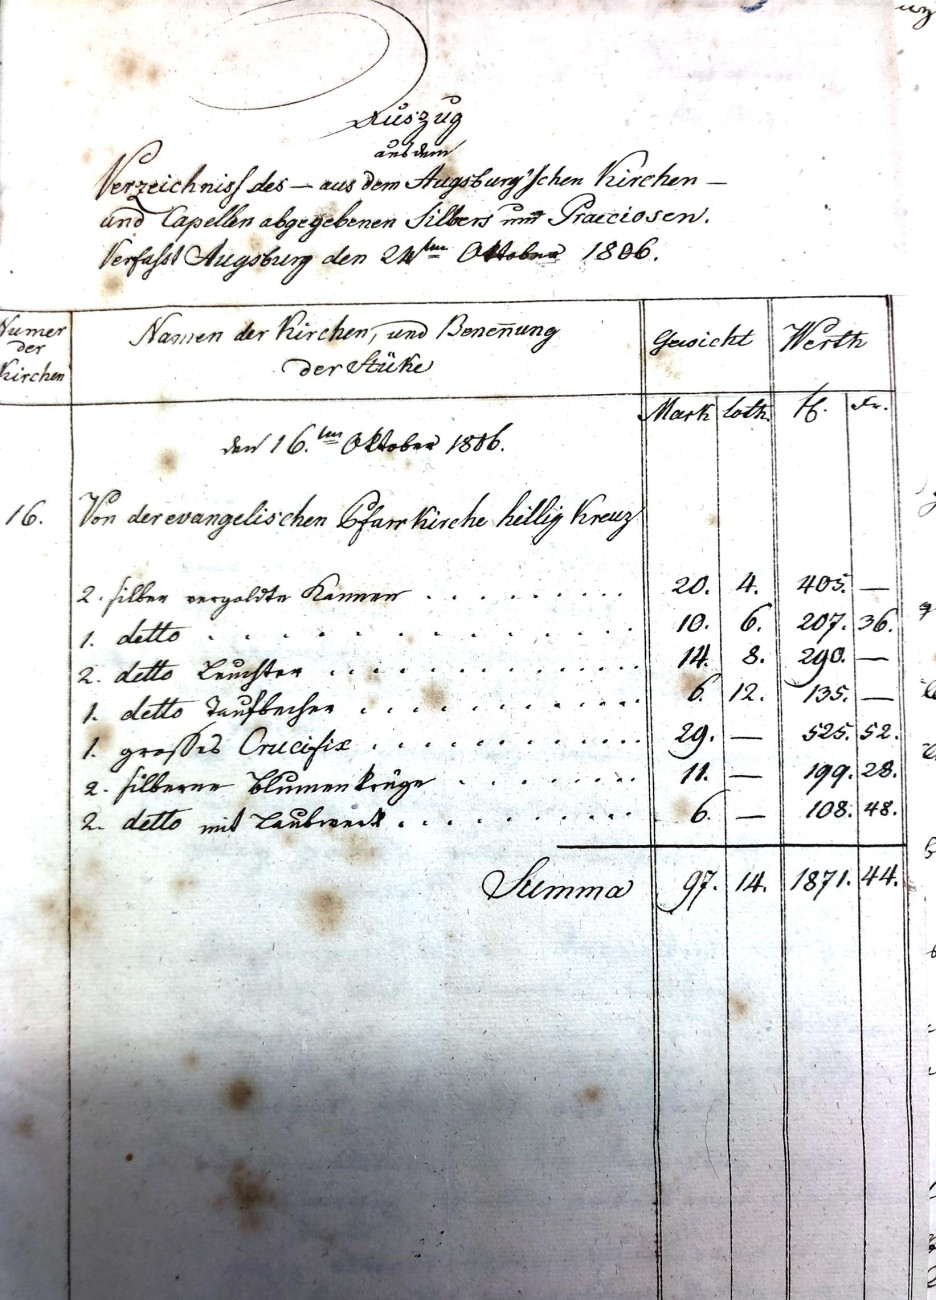 Auszug
aus dem
Verzeichniss des – aus dem Augsburg'schen Kirchen –
und Capellen abgegebenen Silbers und Praeciosen.
Verfasst Augsburg den 24ten Oktober 1806.
Numer der Kirchen Namen der Kirchen, und Benen̄ung der Stüke Gewicht Werth
Mark loth. fl. Kr.
den 16.ten Oktober 1806.
16. Von der evangelischen Pfarrkirche heillig Kreuz
2. silber vergoldte Kannen . . . . . . . . . 20. 4. 405. —
1. detto . . . . . . . . . . . . . . . 10. 6. 207. 36.
2. detto Leuchter . . . . . . . . . . . . . 14. 8. 290. —
1. detto Taufbecher . . . . . . . . . . . 6. 12. 135. —
1. grosses Crucifix . . . . . . . . . . . 29. — 525. 52.
2. silberne Blumenkrüge . . . . . . . . 11. — 199. 28.
2. detto mit Laubwerk . . . . . . . . . . 6. — 108. 48.
Summa 97. 14. 1871. 44.